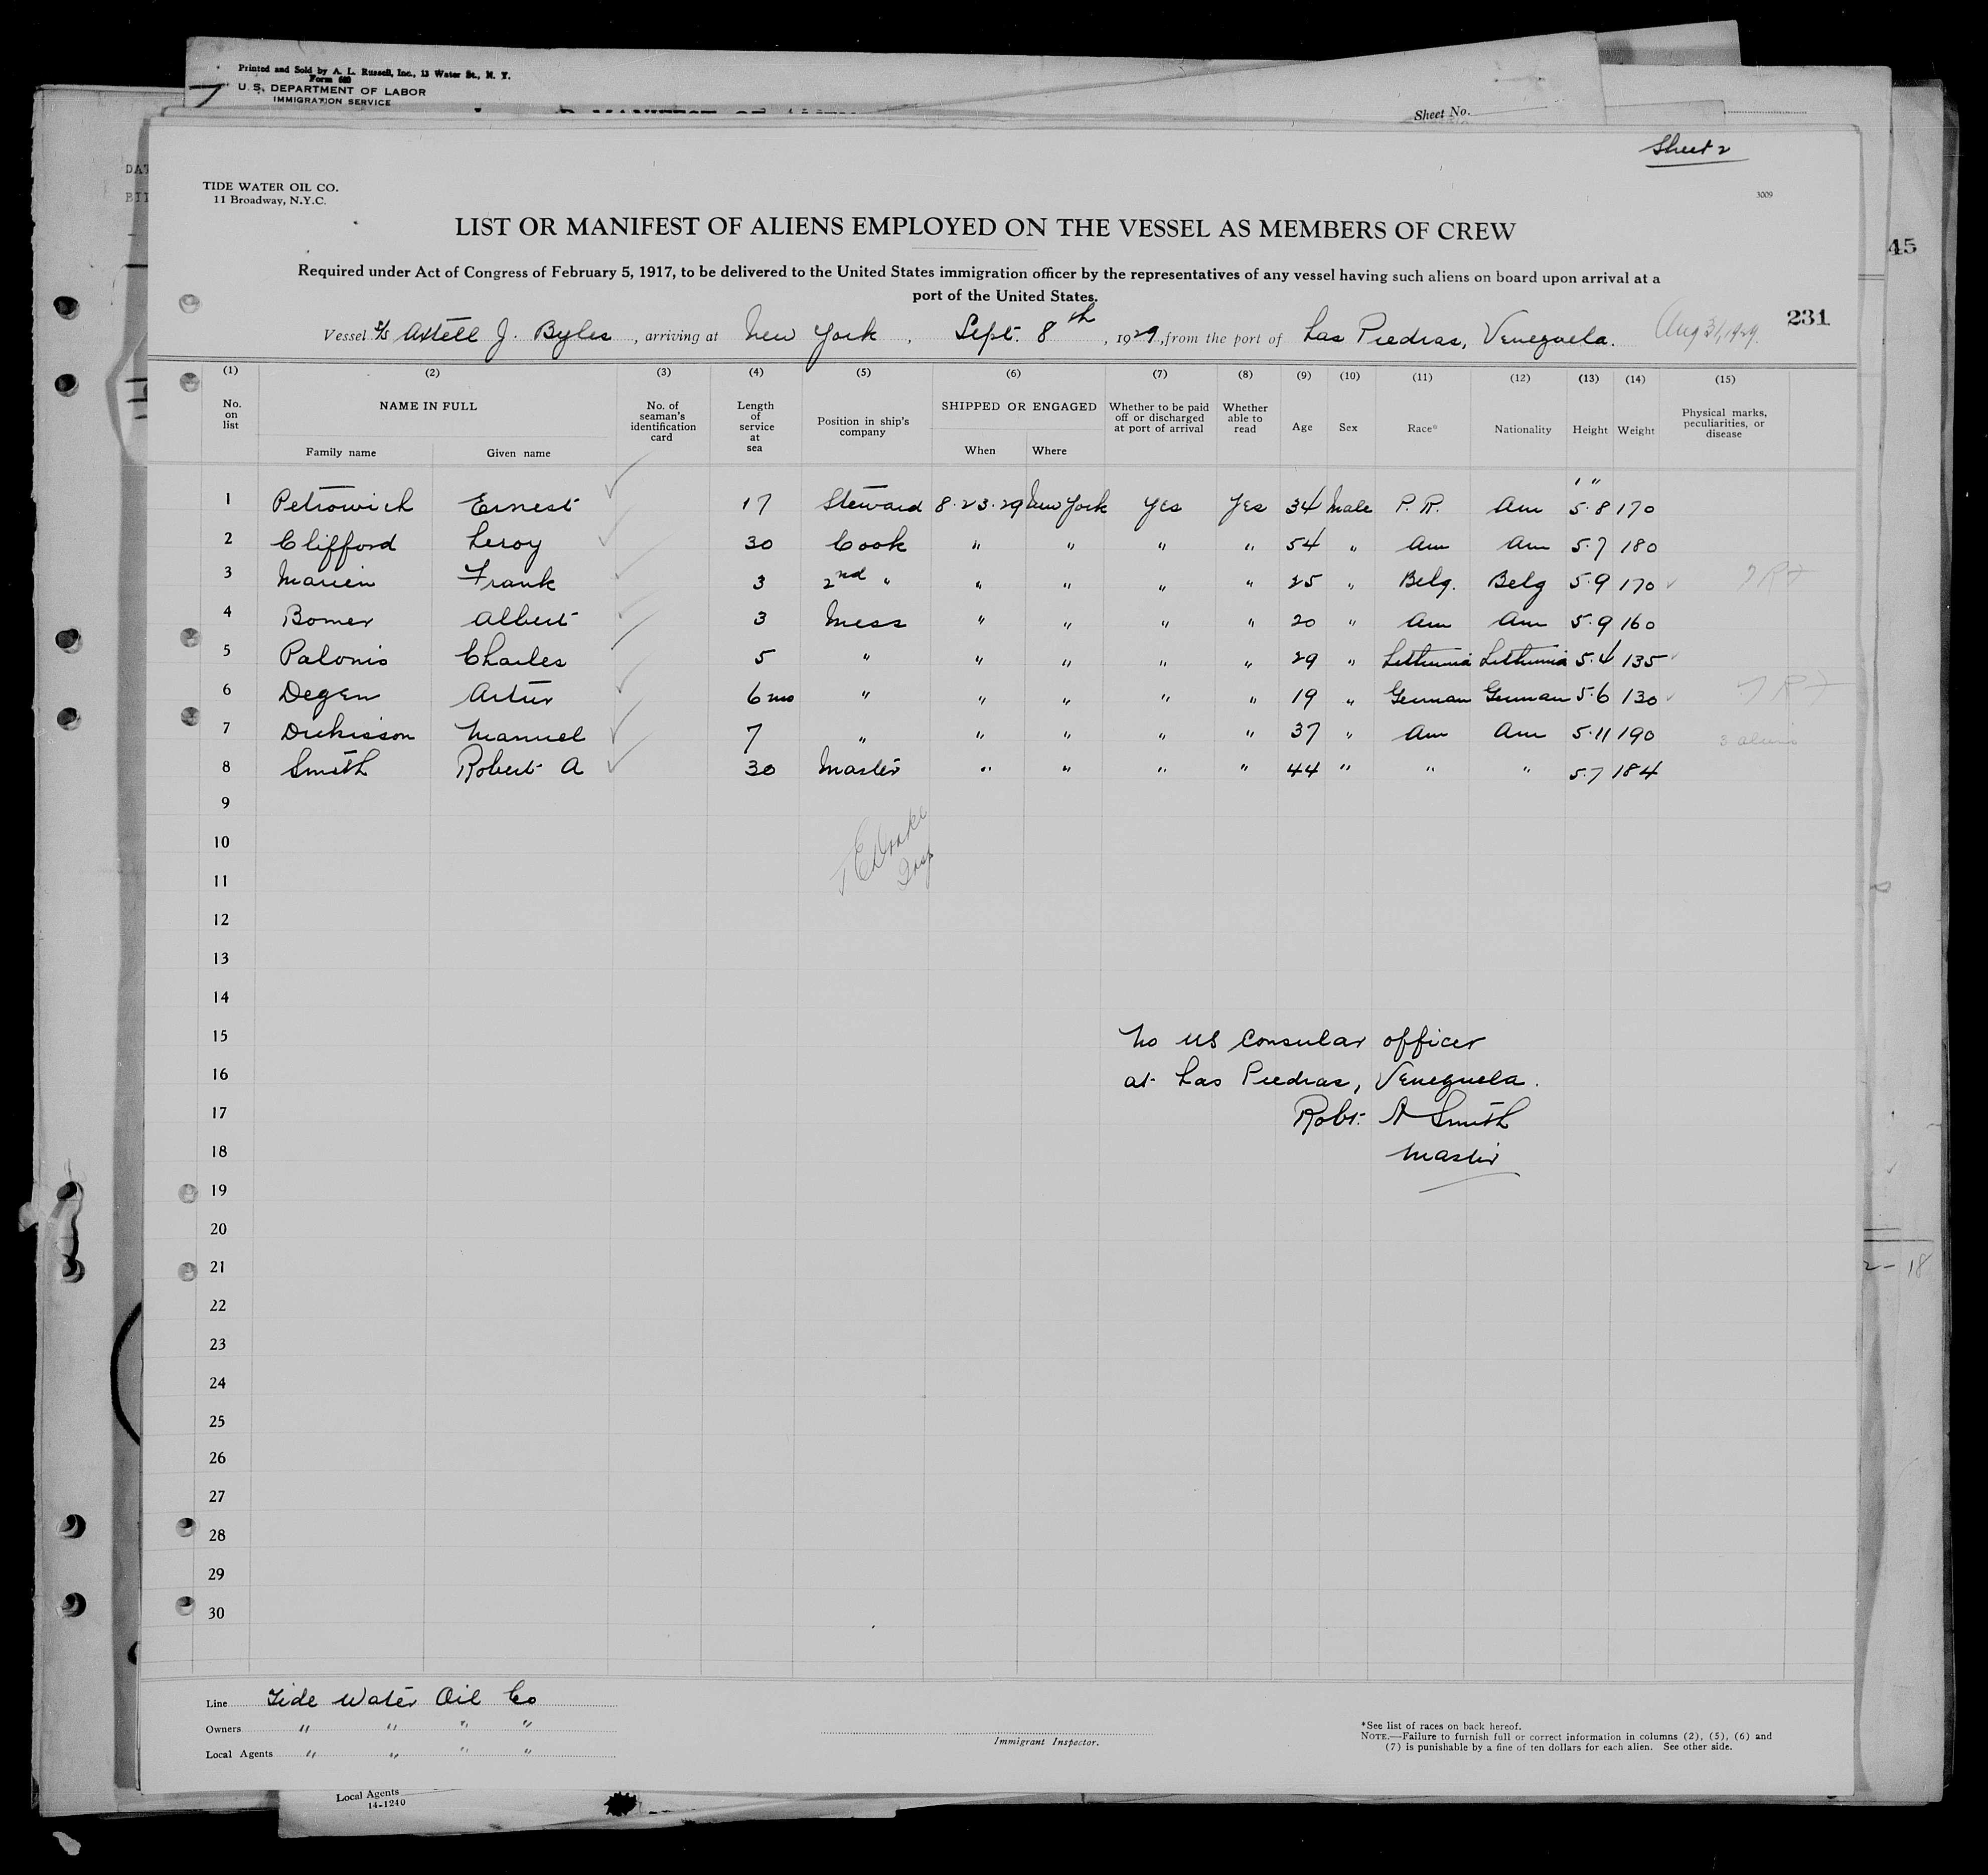 Printed and Sold by A. L. Russell, Inc., 13 Water St., N. Y.
Form 680
U. S. DEPARTMENT OF LABOR
IMMIGRATION SERVICE
Sheet No.
Sheet 2
TIDE WATER OIL CO.
11 Broadway, N.Y.C.
3009
45
LIST OR MANIFEST OF ALIENS EMPLOYED ON THE VESSEL AS MEMBERS OF CREW
Required under Act of Congress of February 5, 1917, to be delivered to the United States immigration officer by the representatives of any vessel having such aliens on board upon arrival at a
port of the United States.
231
Vessel S/S Axtell J. Byles, arriving at New York, Sept. 8th, 1929, from the port of Las Piedras, Venezuela. Aug 31, 1929.
(1) (2) (3) (4) (5) (6) (7) (8) (9) (10) (11) (12) (13) (14) (15)
No. on list NAME IN FULL Family name Given name No. of seaman's identification card Length of service at sea Position in ship's company SHIPPED OR ENGAGED When Where Whether to be paid off or discharged at port of arrival Whether able to read Age Sex Race* Nationality Height Weight Physical marks, peculiarities, or disease
1 Petrowich Ernest 17 Steward 8.23.29 New York Yes Yes 34 Male P.R. Am 5.8 170
2 Clifford Leroy 30 Cook " " " " 54 " Am Am 5.7 180
3 Marien Frank 3 2nd " " " " " 25 " Belg. Belg 5.9 170
4 Bomer Albert 3 Mess " " " " 20 " Am Am 5.9 160
5 Palonis Charles 5 " " " " " 29 " Lithunia Lithunia 5.4 135
6 Degen Artur 6 mo " " " " " 19 " German German 5.6 130
7 Dickisson Manuel 7 " " " " " 37 " Am Am 5.11 190 3 aliens
8 Smith Robert A 30 Master " " " " 44 " " " 5.7 184
9
10
11
12
13
14
15 No US Consular officer
16 at Las Piedras, Venezuela.
17 Robt. A Smith
18 Master
19
20
21
22
23
24
25
26
27
28
29
30
Line Tide Water Oil Co
Owners " " " "
Local Agents " " " "
Immigrant Inspector.
*See list of races on back hereof.
NOTE.—Failure to furnish full or correct information in columns (2), (5), (6) and
(7) is punishable by a fine of ten dollars for each alien. See other side.
Local Agents
14-1240